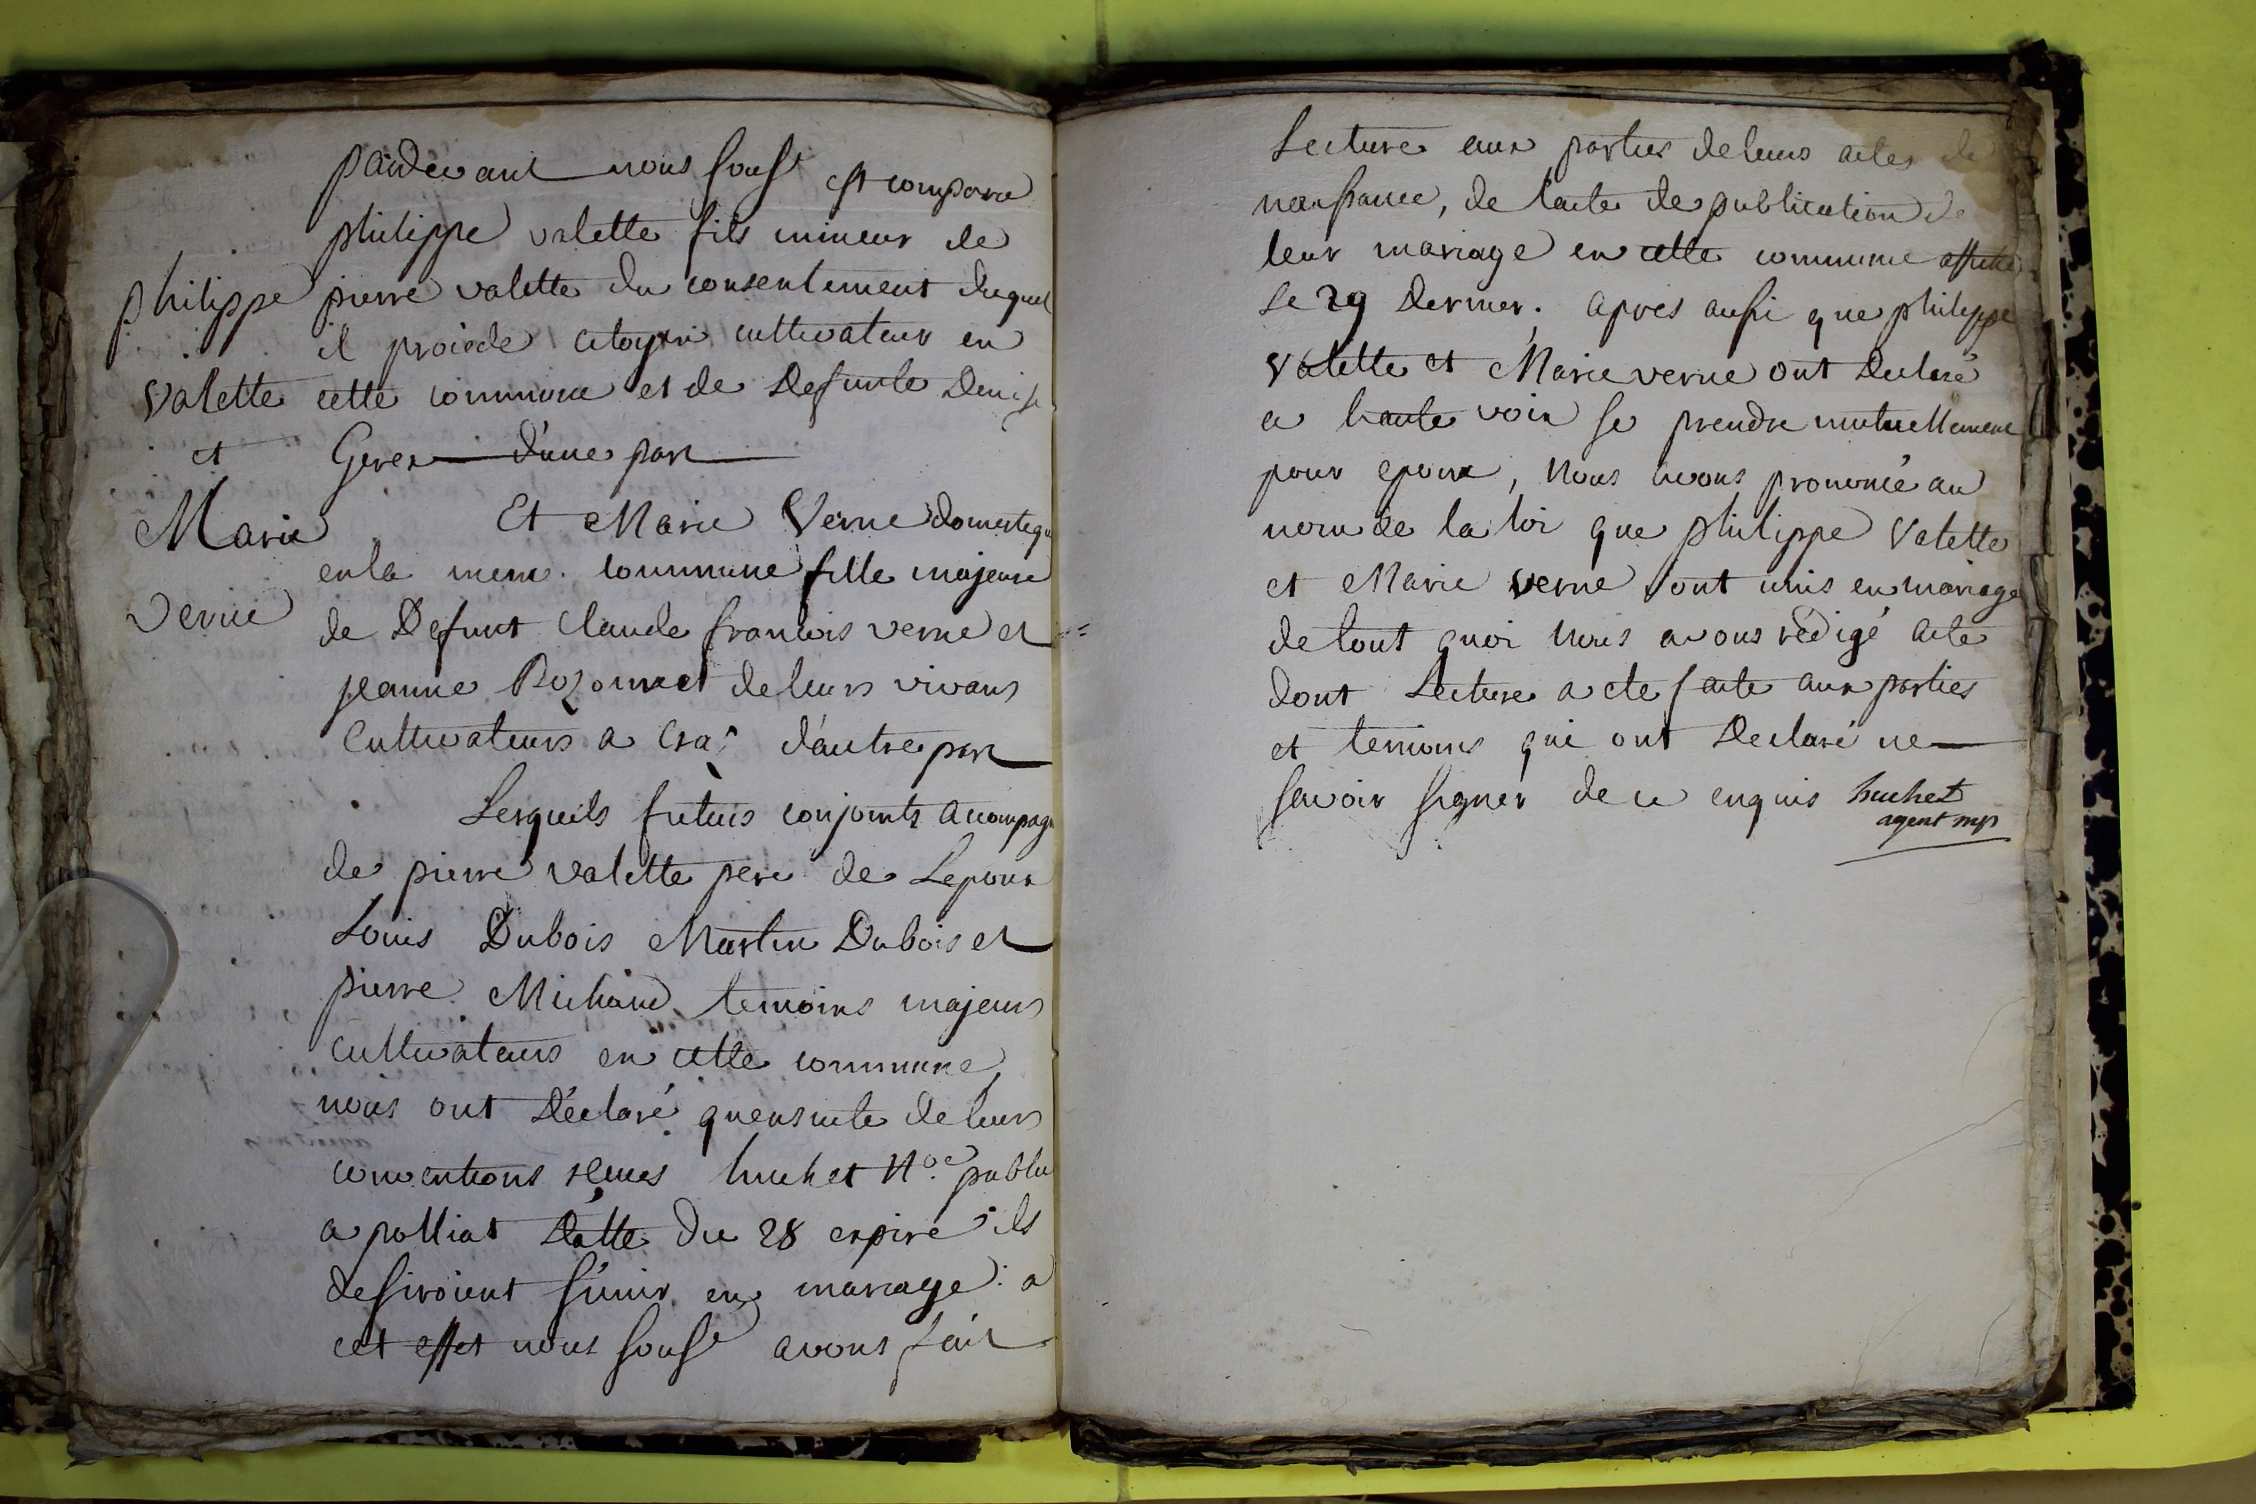 pardevant nous sousé est comparu
philippe valette fils mineur de
philippe
pierre valette du consentement duquel
il procède citoyen cultivateur en
Valette
cette commune et de Defunte Denise
et
Gerex d'une part
Marie
Et Marie Verne domestique
en la mem. commune fille majeure
verne
de Defunt Claude francois verne et
jeanne Rozonnet de leurs vivans
Cultivateurs a Cra; d'autre part
Lesquels futurs conjoints accompag
de pierre valette pere de Lepoux
Louis Dubois Martin Dubois et
pierre Michaud temoins majeurs
cultivateurs en cette commune,
nous ont Déclaré quensuite de leurs
conventions reçues huchet No.e public
a polliat Datte du 28 expiré ils
desiroient s'unir en mariage: a
cet effet nous sousé avons fait
Lecture aux parties de leurs actes de
naissance, de lacte de publication de
leur mariage en cette commune affiché
Le 29 Dernier. apres aussi que philippe
Valette et Marie verne ont Declaré
a haute voix se prendre mutuellement
pour epoux, nous avons prononcé au
nom de la loi que philippe Valette
et Marie verne sont unis en mariage
de tout quoi nous avons rédigé acte
dont Lecture a ete faite aux parties
et temoins qui ont Declaré ne
savoir signer de ce enquis huchet
agent mp